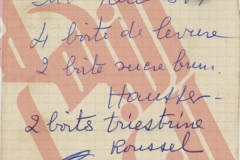 4 boîte de levure
2 bîte sucre brun.
Hausser-
2 boîts triestrine
Roussel